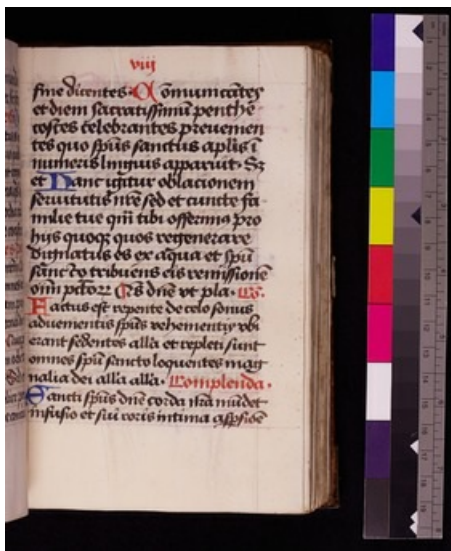 viij
fine dicentes. Cōmunicātes
et diem sacratissimū penthe
costes celebrantes preuenien
tes quo spūs sanctus aplis ī
numeris linguis apparuit. Sz
et Hanc igitur oblacionem
seruitutis nrē sed et cuncte fa
milie tue qm̄ tibi offerimꝰ pro
hijs quoqz quos regenerare
dignatus es ex aqua et spū
sancto tribuens eis remissionē
oīm pctorꝝ dnē vt pla. Cō.
Factus est repente de celo sonus
aduenientis spūs vehementis vbi
erant sedentes allā et repleti sunt
omnes spū sancto loquentes mag
nalia dei allā allā. Complenda.
Sancti spūs dnē corda nrā mūdet
infusio et sui roris intima aspsiōe